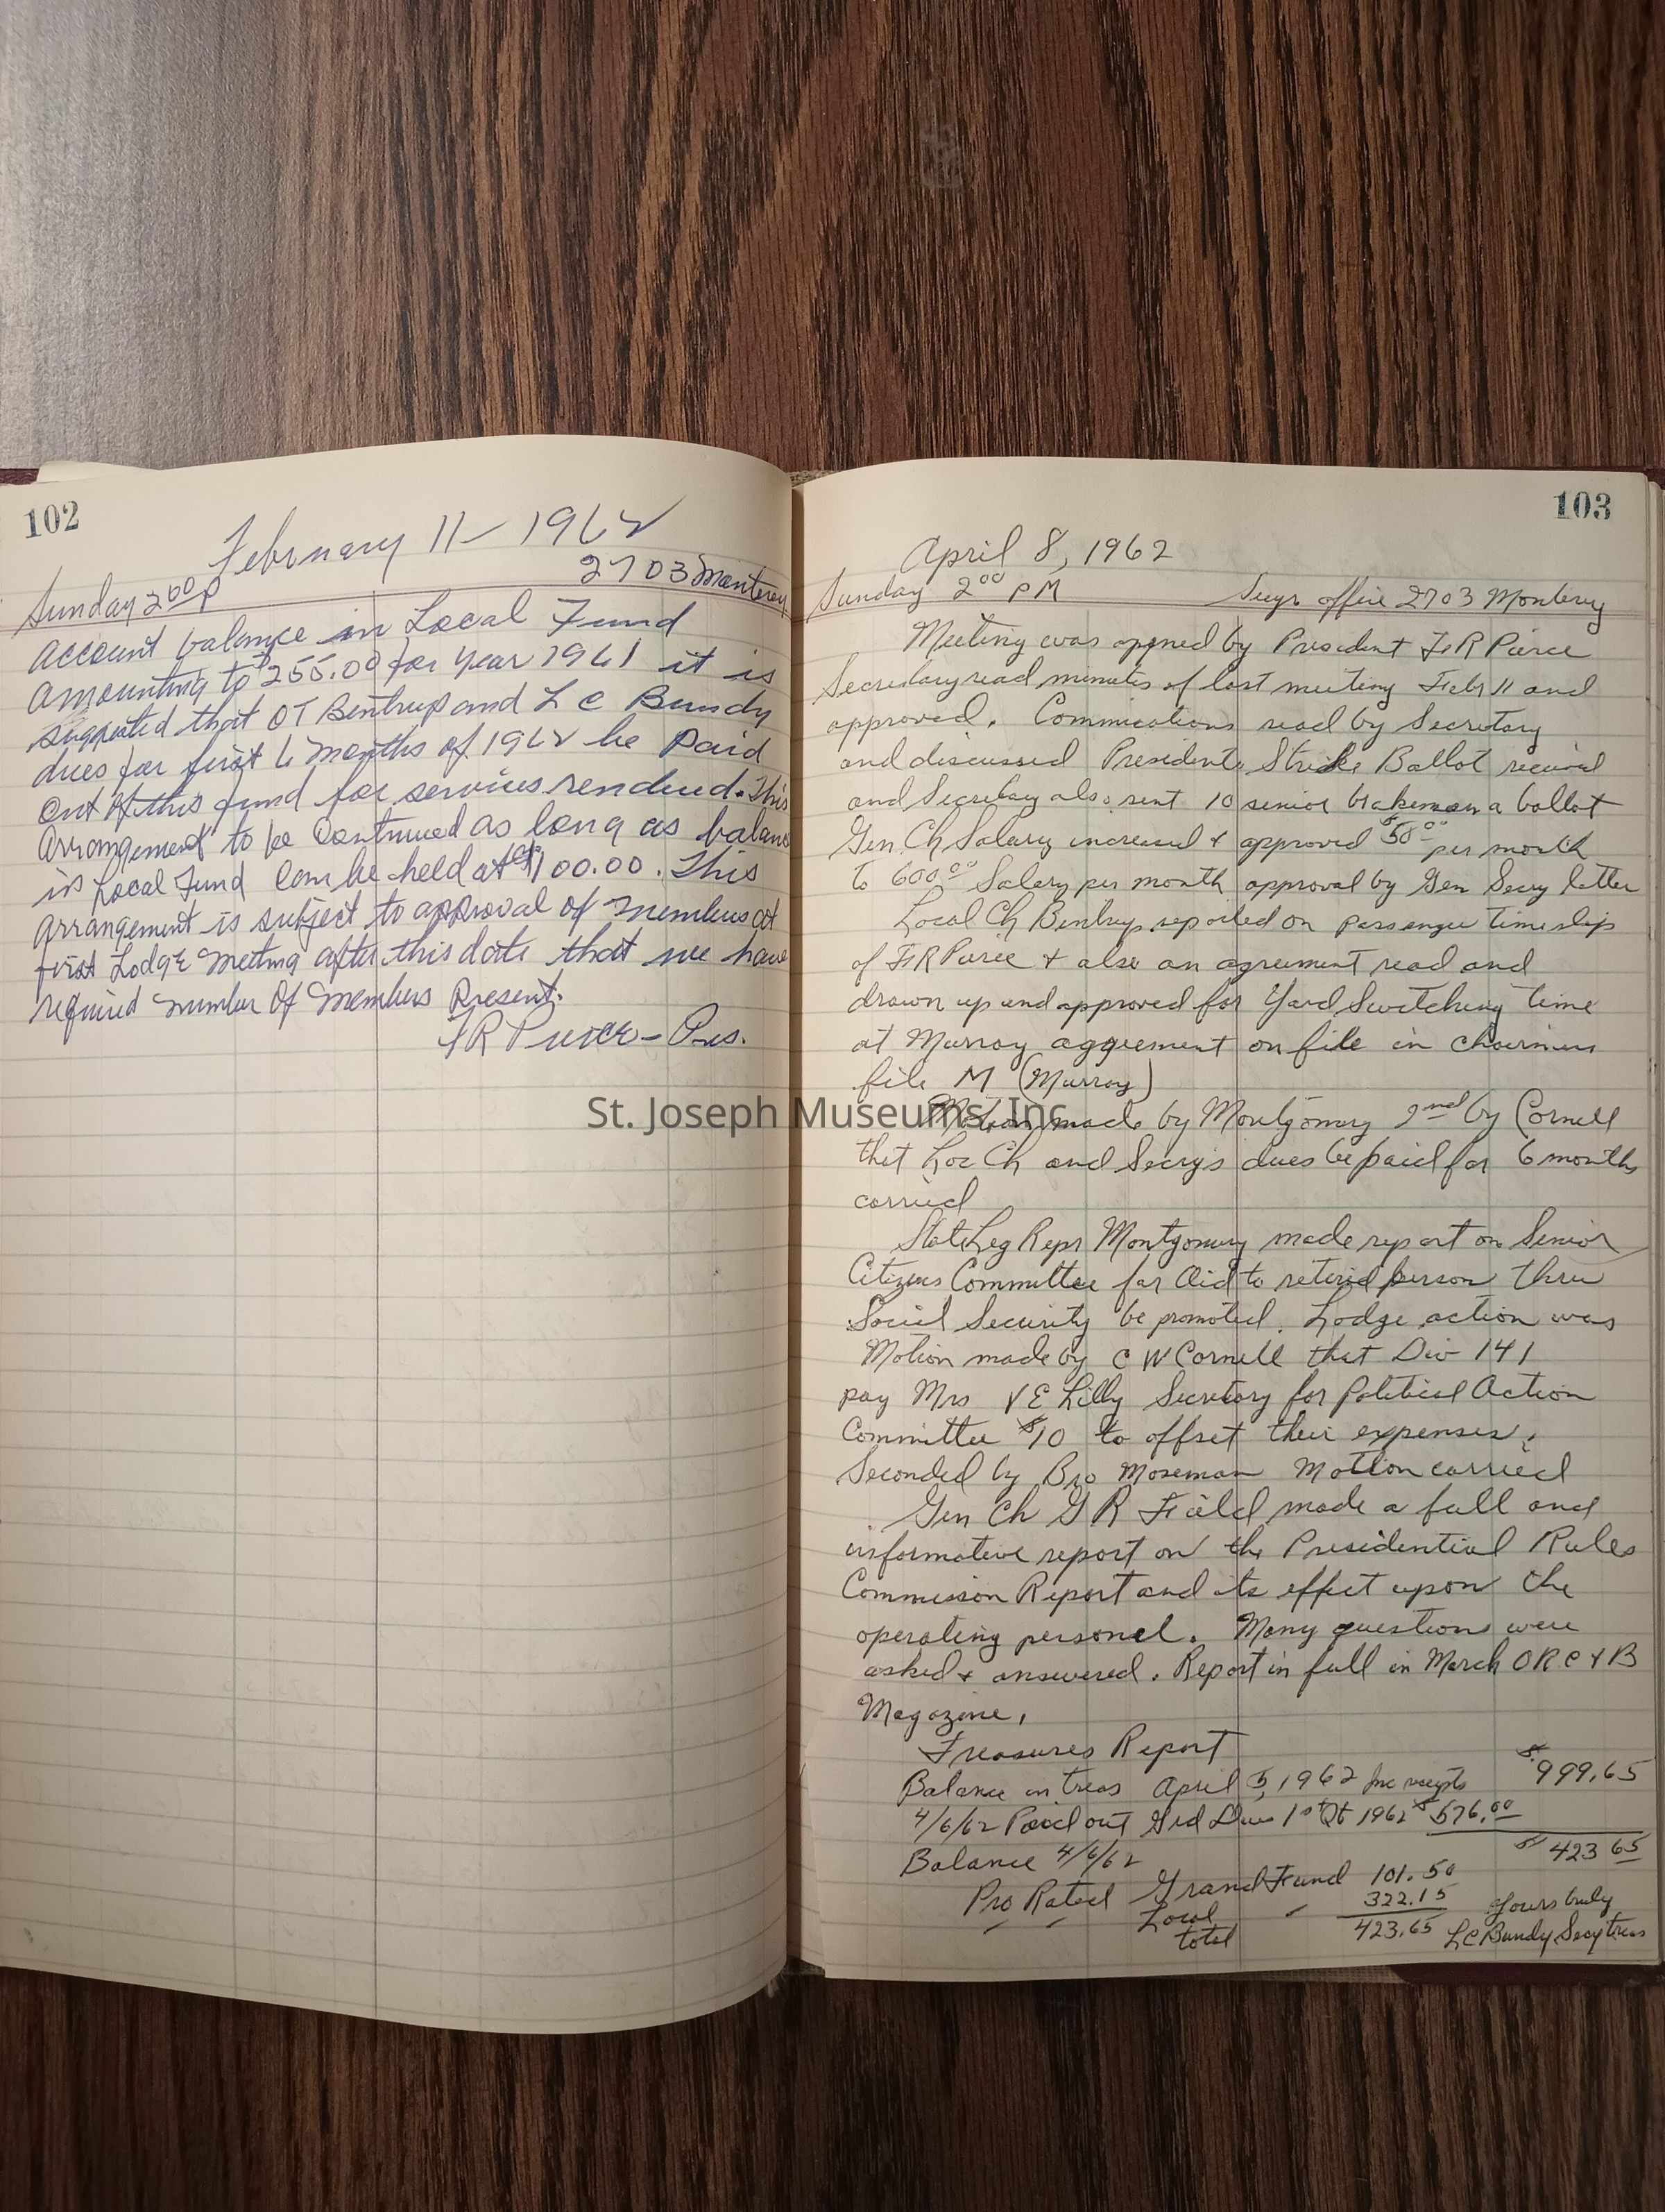 102
February 11 - 1962
Sunday 2 00 P 2703 Monterey
Account balance in Local Fund
Amounting to $255.00 for Year 1961 it is
suggested that OT Bentrup and L C Bundy
dues for first 6 months of 1962 be paid
out of this fund for services rendered. This
Arrangement to be Continued as long as balance
in Local Fund Can be held at $100.00. This
Arrangement is subject to approval of members at
first Lodge meeting after this date that we have
required number of members Present.
FR Pierce - Pres.
103
April 8, 1962
Sunday 2 00 PM Secys office 2703 Monterey
Meeting was opened by President F R Pierce
Secretary read minutes of last meeting Feb 11 and
approved. Commications read by Secretary
and discussed Presidents Strike Ballot received
and Secretary also sent 10 senior brakeman a ballot
Gen. Ch Salary increased + approved $50 00 per month
to 600 00 Salary per month approval by Gen Secy letter
Local Ch Bentrup reported on passenger time slip
of F R Pierce + also an agreement read and
drawn up and approved for Yard Switching time
at Murray aggreement on file in chairmans
file M (Murray)
Motion made by Montgomery 2nd by Cornell
that Loc Ch and Secrys dues be paid for 6 months
carried
State Leg Repr Montgomery made report on Senior
Citizens Committee for Aid to retired person thru
Social Security be promoted. Lodge action was
Motion made by C W Cornell that Div 141
pay Mrs V E Lilly Secretary for Political Action
Committee $10 to offset their expenses.
Seconded by Bro Moseman Motion carried
Gen Ch G R Field made a full and
informative report on the Presidential Rules
Commission Report and its effect upon the
operating personel. Many questions were
asked + answered. Report in full in March O R C + B
Magazine.
Treasures Report
Balance in treas April 5, 1962 Inc receipts $999.65
4/6/62 Paid out Grd Dues 1st Qt 1962 $576.00
Balance 4/6/62 $423 65
Pro Rated Grand Fund 101.50
Local 322.15 Yours truly
total 423.65 L C Bundy Secy treas
St. Joseph Museums, Inc.